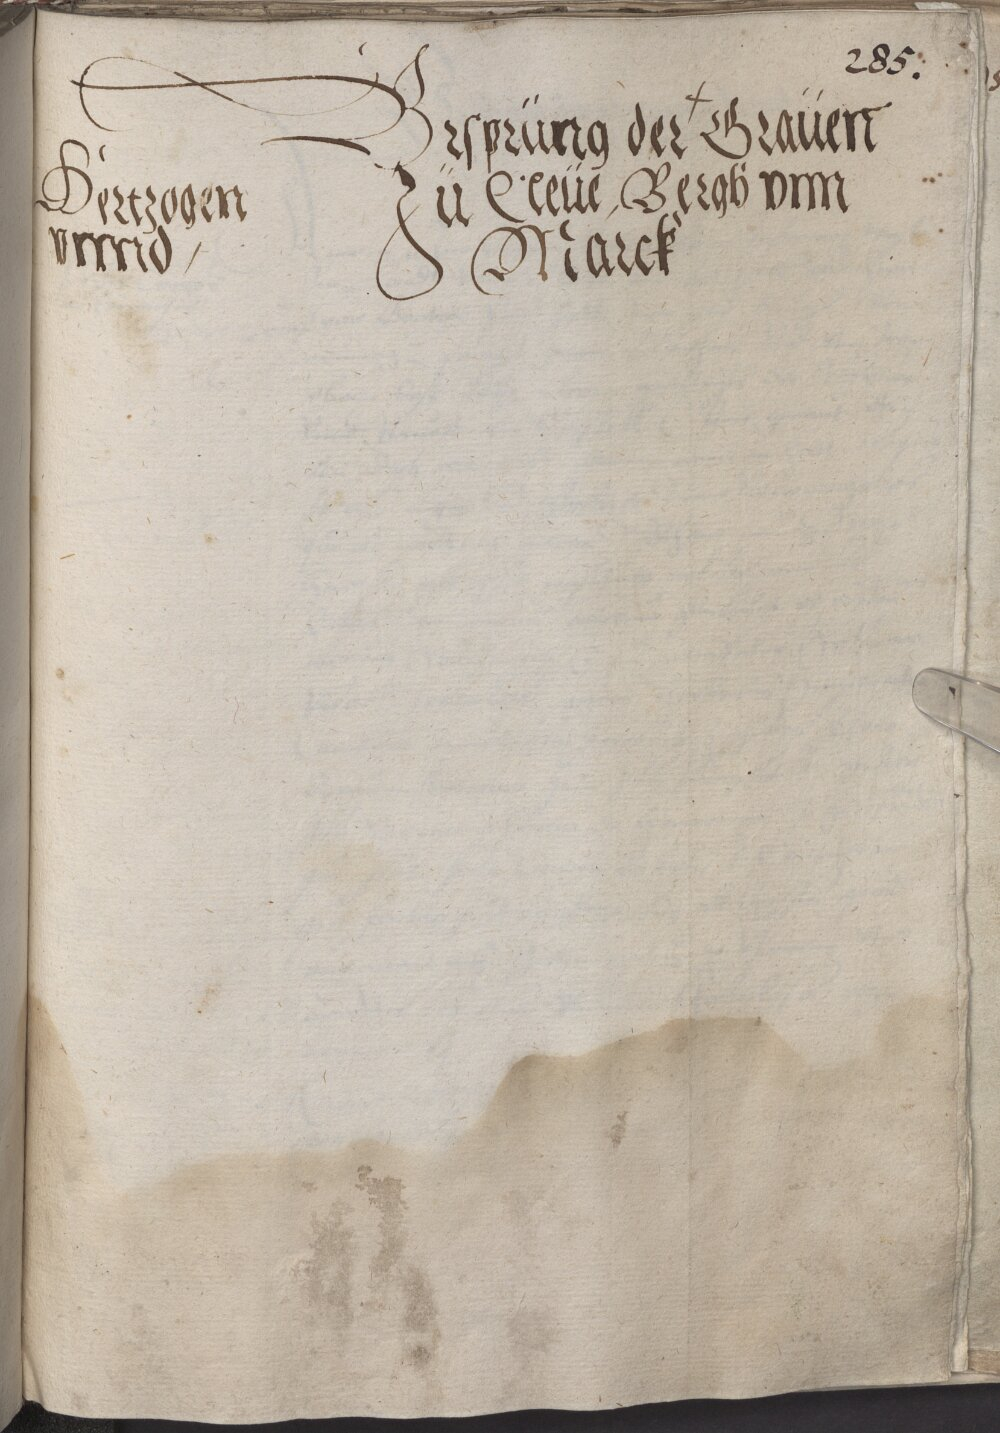 285.
Vrsprüng der + Graüen
Zü Cleüe, Bergh vnn
Marck
Hertzogen
vnnnd /